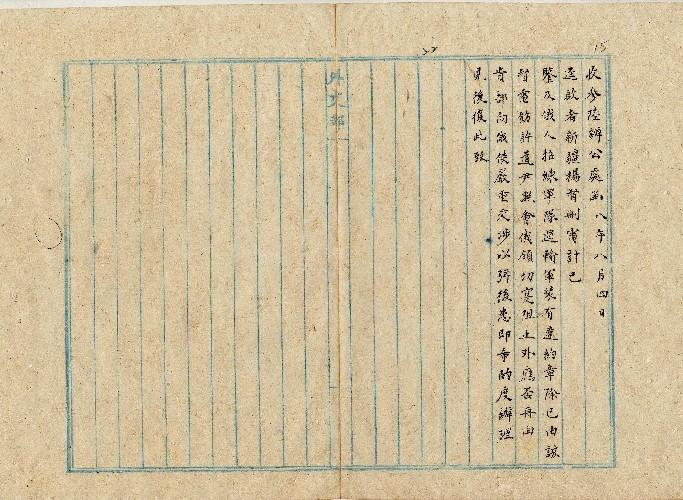 15
收參陸辦公處函八年八月四日
逕啟者新疆楊督刪電計已
鑒及俄人招練軍隊運輸軍裝有違約章除已由該
督電飭許道尹照會俄領切實阻止外應否再由
貴部向俄使嚴重交涉以弭後患即希酌度辦理
見復此致
外交部